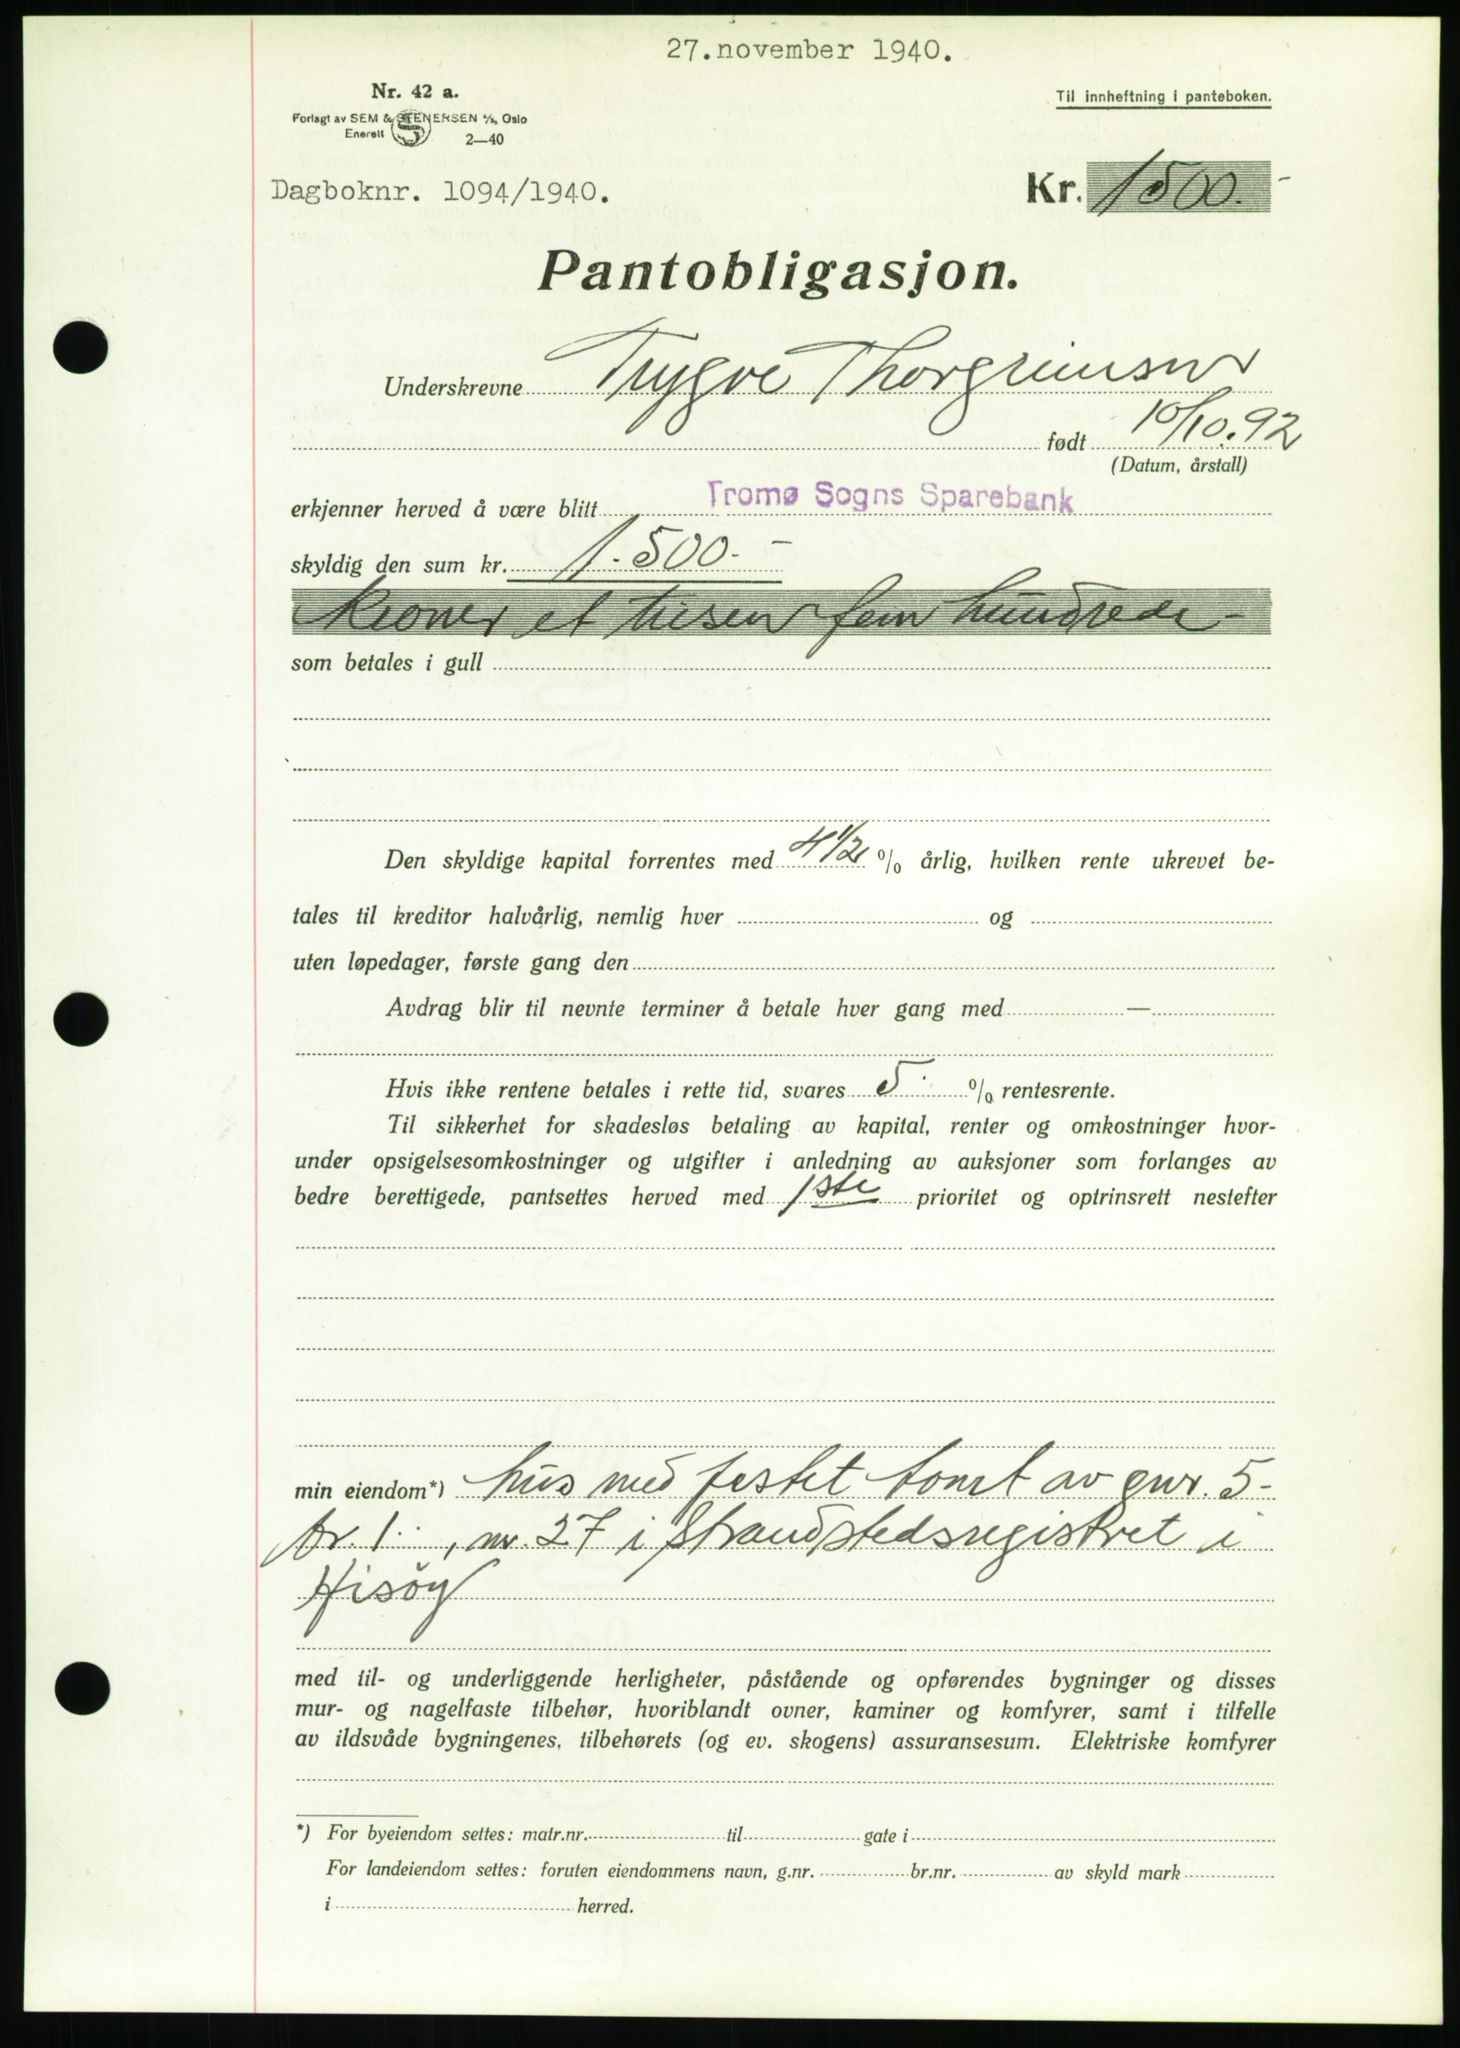 27.november 1940.
Nr. 42 a.
Til innheftning i panteboken.
Forlagt av SEM & STENERSEN A/S, Oslo
Enerett 2—40
Dagboknr. 1094/1940.
Kr. 1500.-
Pantobligasjon.
Underskrevne Trygve Thorgrimsen
født 10/10.92
(Datum, årstall)
erkjenner herved å være blitt Tromø Sogns Sparebank
skyldig den sum kr. 1.500.-
kroner et tusen fem hundrede -
som betales i gull
Den skyldige kapital forrentes med 4 1/2 % årlig, hvilken rente ukrevet be-
tales til kreditor halvårlig, nemlig hver og
uten løpedager, første gang den
Avdrag blir til nevnte terminer å betale hver gang med —
Hvis ikke rentene betales i rette tid, svares 5 % rentesrente.
Til sikkerhet for skadesløs betaling av kapital, renter og omkostninger hvor-
under opsigelsesomkostninger og utgifter i anledning av auksjoner som forlanges av
bedre berettigede, pantsettes herved med 1ste prioritet og optrinsrett nestefter
min eiendom*) hus med festet tomt av gnr. 5-
br. 1 , nr. 27 i Strandstedsregistret i
Hisöy
med til- og underliggende herligheter, påstående og opførendes bygninger og disses
mur- og nagelfaste tilbehør, hvoriblandt ovner, kaminer og komfyrer, samt i tilfelle
av ildsvåde bygningenes, tilbehørets (og ev. skogens) assuransesum. Elektriske komfyrer
*) For byeiendom settes: matr.nr. til gate i
For landeiendom settes: foruten eiendommens navn, g.nr. br.nr. av skyld mark
i herred.